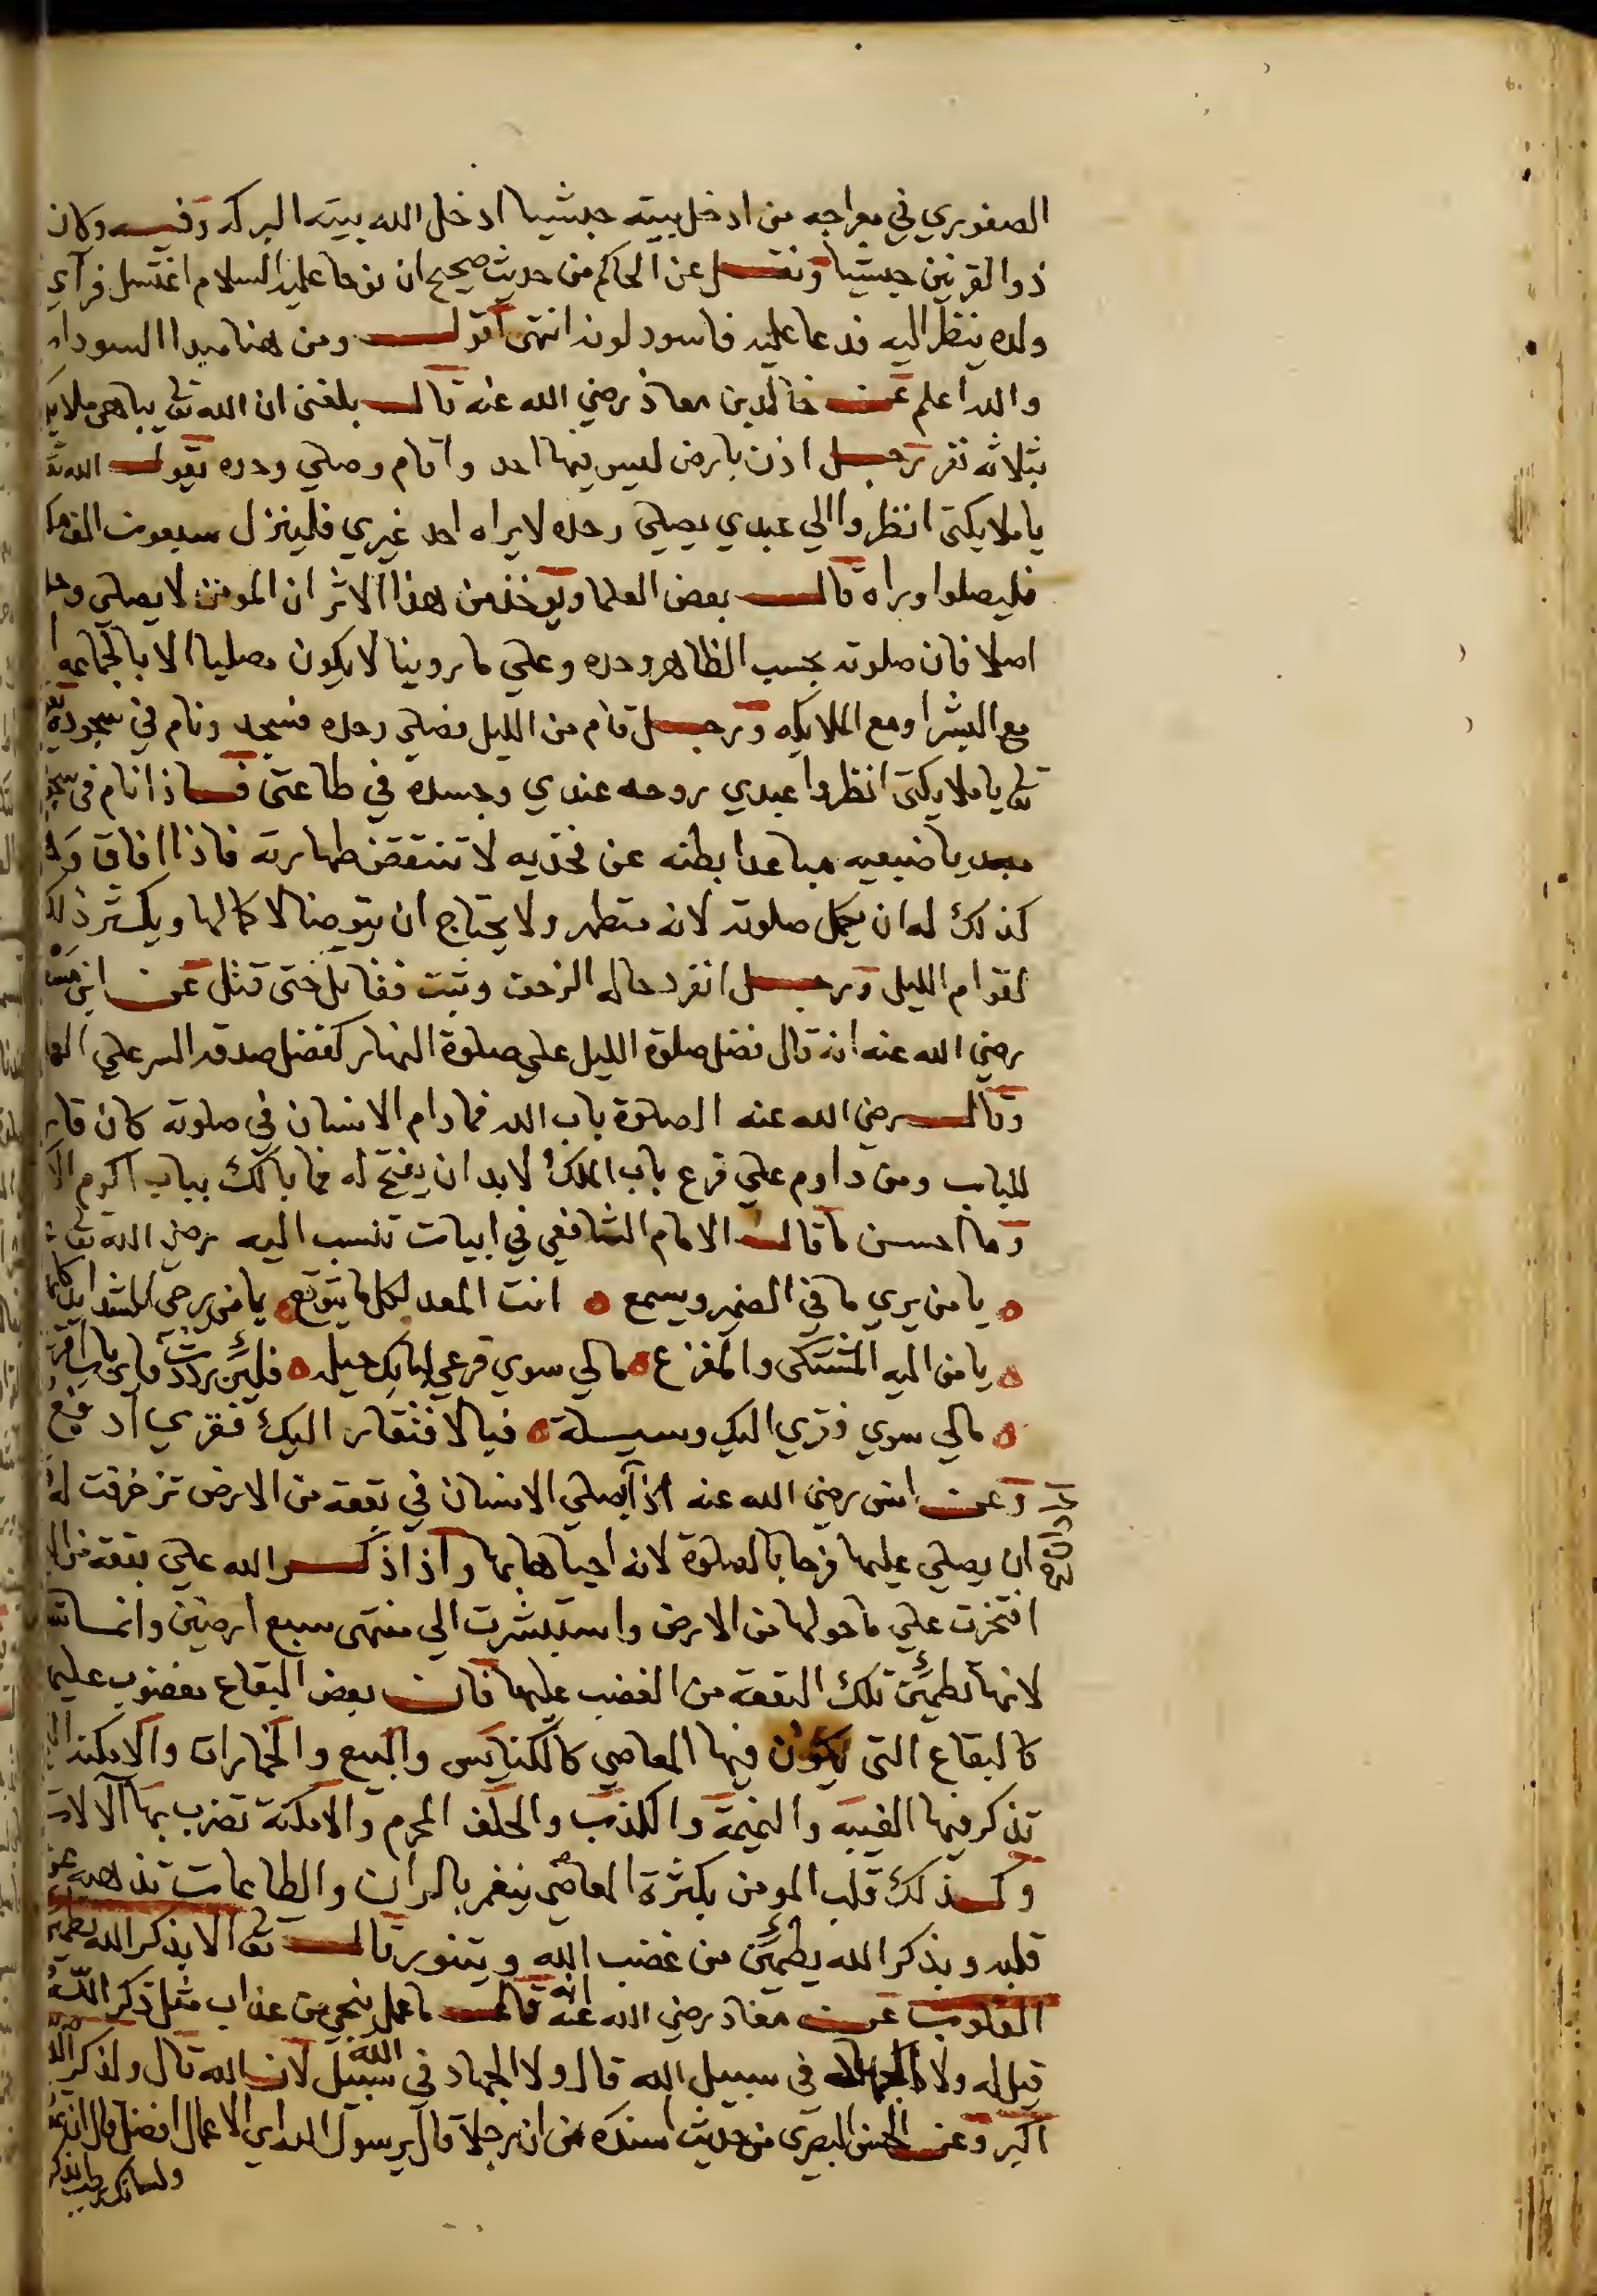 الصفوري في معراجه من ادخل بيته حبشيا ادخل الله بيته البركه وفيه وكان
ذوالقرنين حبشيا ونقل عن الحاكم من حديث صحيح ان نوحا عليه السلام اغتسل فرآي
ولده ينظر اليه فدعا عليه فاسود لونه انتهى اقول ومن هنا مبدا السودان
والله اعلم عن خالد بن معاذ رضي الله عنه قال بلغني ان الله تع يباهى ملايكه
بثلاثه نفر رجل اذن بارض ليس فيها احد واقام وصلي وحده يقول الله تع
يا ملايكتى انظروا الي عبدي يصلي وحده لا يراه احد غيري فلينزل سبعون الف ملك
فليصلوا وراه قال بعض العلما ويوخذ من هذا الاثر ان المومن لا يصلي وحده
اصلا فان صلوته بحسب الظاهر وحده وعلي ما روينا لا يكون مصليا الا بالجماعه
مع البشر او مع الملايكه ورجل قام من الليل فصلي وحده فسجد ونام في سجوده
تع يا ملايكتى انظروا عبدي روحه عندي وجسده في طاعتى فاذا نام في
ضبعيه مباعدا بطنه عن فخذيه لا تنتقض طهارته فاذا افاق
كذلك له ان يكمل صلوته لانه متطهر ولا يحتاج ان يتوضا لاكمالها ويكثر ذلك
لقوام الليل ورجل انفرد حاله الزحف وثبت فقاتل حتى قتل عن ابن
رضي الله عنه انه قال فضل صلوة الليل علي صلوة النهار كفضل صدقه السر علي
وقال رضي الله عنه الصلوة باب الله فما دام الانسان في صلوته كان
للباب ومن داوم علي قرع باب الملك لا بد ان يفتح له فما بالك بباب اكرم
وما احسن ما قال الامام الشافعي في ابيات تنسب اليه رضي الله تع
يا من يري ما في الضمير ويسمع انت المعد لكل ما يتوقع يا من يرجى للشدايد
يا من اليه المشتكى والمفزع مالي سوي قرعي لبابك حيله فلين رددت فاي باب اقرع
مالي سوي فقري اليك وسيلة فبالافتقار اليك فقري ادفع
وعن انس رضي الله عنه اذا يصلي الانسان في بقعه من الارض تزخرفت له
ان يصلي عليها فرحا بالصلوة لانه احياها بها واذا ذكر الله علي بقعه من
افتخرت علي ما حولها من الارض واستبشرت الي منتهى سبع ارضين وانما
لانها تطمئن تلك البقعه من الغضب عليها فان بعض البقاع مغضوب عليها
كالبقاع التى يكون فيها المعاصي كالكنايس والبيع والخمارات والامكنه
تذكر فيها الغيبه والنميمة والكذب والحلف المحرم والامكنة تضرب بها الالات
وكذلك قلب المومن بكثرة المعاصي ينغمر بالران والطاعات تذهبه عن
قلبه وبذكر الله يطمئن من غضب الله ويتنور قال تع الا بذكر الله تطمئن
القلوب عن معاذ رضي الله عنه انه قال ما عمل ينجي من عذاب مثل ذكر الله
قيل له ولا الجهاد في سبيل الله قال ولا الجهاد في سبيل الله لان الله قال ولذكر الله
اكبر وعن الحسن البصري من حديث اسنده من ان رجلا قال يرسول الله اي الاعمال افضل قال ان تموت
ولسانك رطب بذكر